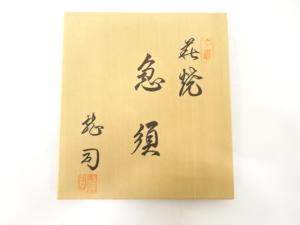 萩焼
急須
龍司